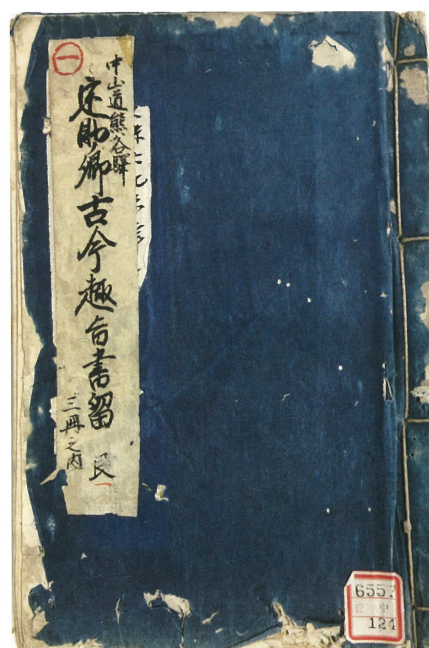 一
中山道熊谷驛
定助郷古今趣旨書留
三冊之内
6557
中
124